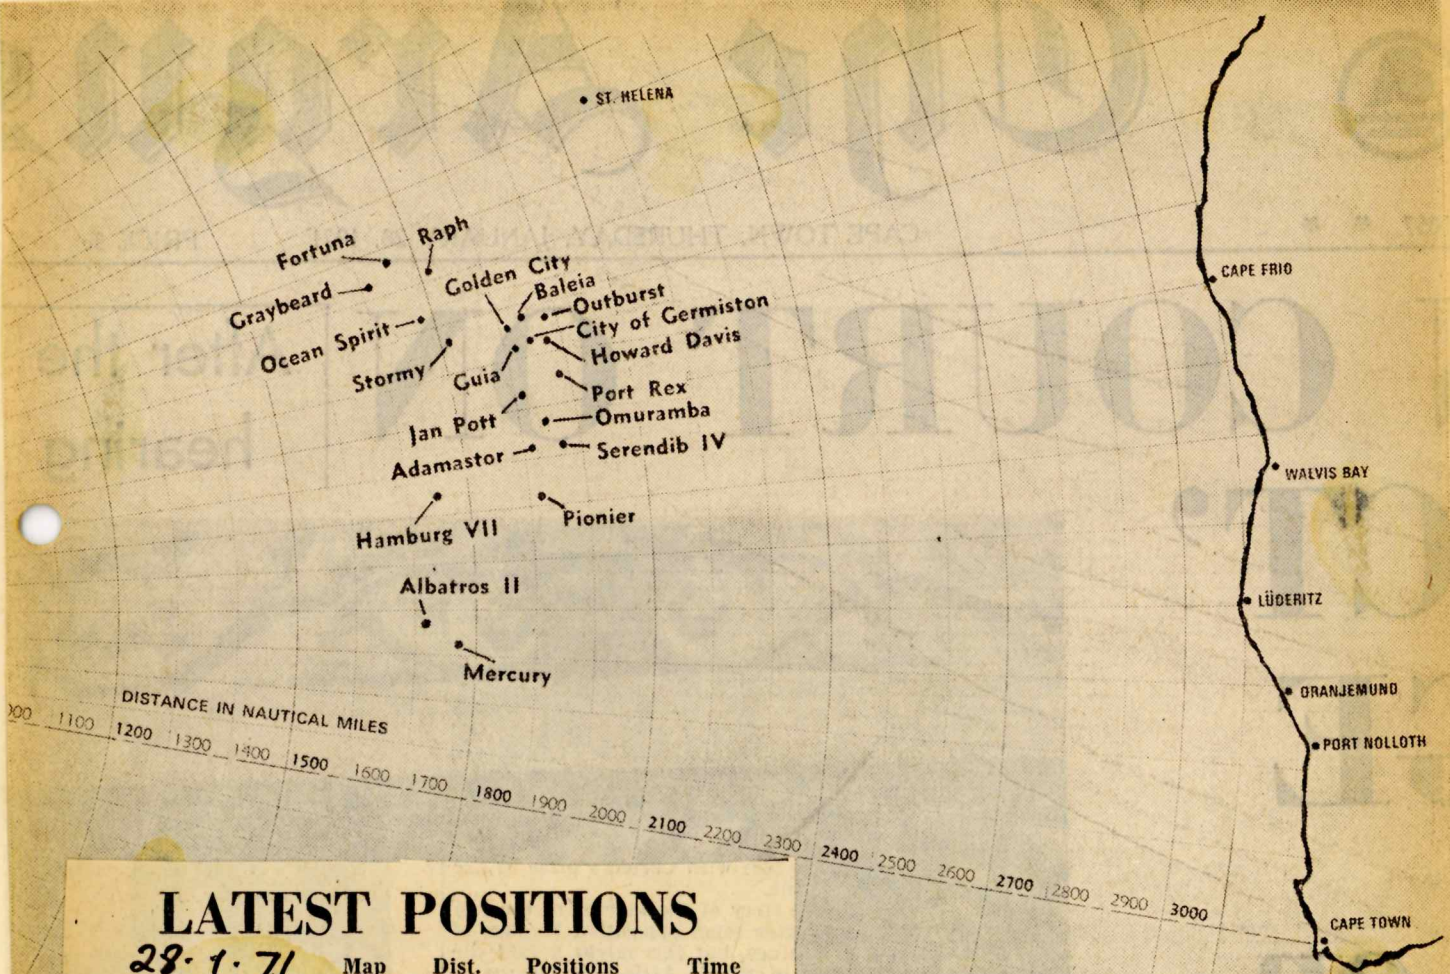 ST. HELENA
Raph
Fortuna
Golden City
Baleia
Graybeard
Outburst
City of Germiston
Ocean Spirit
Howard Davis
Stormy
Guia
Port Rex
Jan Pott
Omuramba
Adamastor
Serendib IV
Pionier
Hamburg VII
Albatros II
Mercury
CAPE FRIO
WALVIS BAY
LÜDERITZ
ORANJEMUND
PORT NOLLOTH
CAPE TOWN
DISTANCE IN NAUTICAL MILES
1100 1200 1300 1400 1500 1600 1700 1800 1900 2000 2100 2200 2300 2400 2500 2600 2700 2800 2900 3000
LATEST POSITIONS
28.1.71 Map Dist. Positions Time